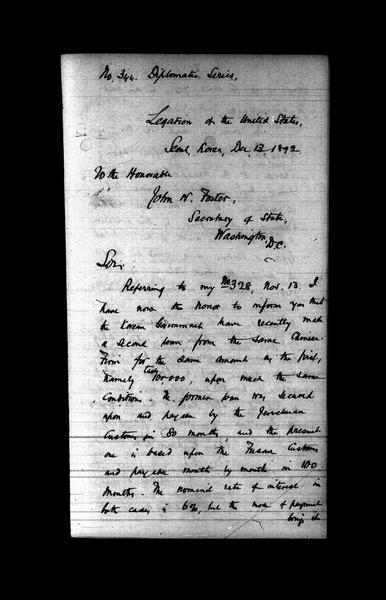 No. 344. Diplomatic Series.
Legation of the United States,
Seoul, Korea, Dec. 13. 1892
To the Honorable
John W. Foster,
Secretary of State,
Washington,
D.C.
Sir;
Referring to my No 328, Nov. 13. I
have now the honor to inform you that
the Korean Government have recently made
a second loan from the same Chinese
Firm for the same amount as the first,
namely Tls 100.000, upon much the same
Conditions. The former loan was secured
upon and payable by the
Customs in 80 months, and the present
one is based upon the Fusan Customs
and payable month by month in 100
months. The nominal rate of interest in
both cases is 6%, but the mode of payment
brings it